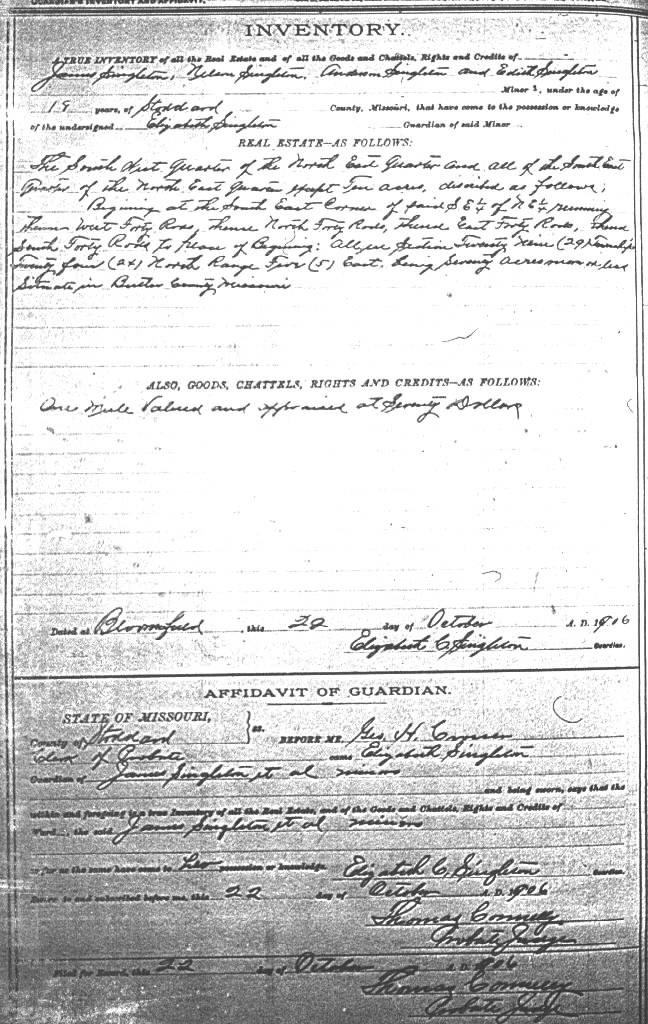 GUARDIAN'S INVENTORY AND AFFIDAVIT.
INVENTORY.
A TRUE INVENTORY of all the Real Estate and of all the Goods and Chattels, Rights and Credits of
James Singleton, Nelson Singleton, Anderson Singleton and Edith Singleton
Minor s, under the age of
18 years, of Stoddard County, Missouri, that have come to the possession or knowledge
of the undersigned Elizabeth Singleton Guardian of said Minor
REAL ESTATE—AS FOLLOWS:
The South West Quarter of the North East Quarter and all of the South East
Quarter of the North East Quarter except Ten acres, discribed as follows;
Begining at the South East Corner of said S E ¼ of N E ¼ running
thence West Forty Rods, thence North Forty Rods, thence East Forty Rods, thence
South Forty Rods to place of Begining; All in Section Twenty Nine (29) Township
Twenty four (24) North Range Five (5) East. being Seventy Acres more or less
Situate in Butler County Missouri
ALSO, GOODS, CHATTELS, RIGHTS AND CREDITS—AS FOLLOWS:
One Mule Valued and appraised at Seventy Dollars
Dated at Bloomfield, this 22 day of October A. D. 1906
Elizabeth C Singleton Guardian.
AFFIDAVIT OF GUARDIAN.
STATE OF MISSOURI,
County of Stoddard } ss. BEFORE ME, Geo. H. 
Clerk of Probate came Elizabeth Singleton
Guardian of James Singleton et al minors
and being sworn, says that the
within and foregoing is a true Inventory of all the Real Estate, and of the Goods and Chattels, Rights and Credits of
Ward , the said James Singleton et al minors
so far as the same have come to possession or knowledge. Elizabeth C. Singleton Guardian.
Sworn to and subscribed before me, this 22 day of October A. D. 1906
Thomas Connelly
Probate Judge
Filed for Record, this 22 day of October A. D. 1906
Thomas Connelly
Probate Judge